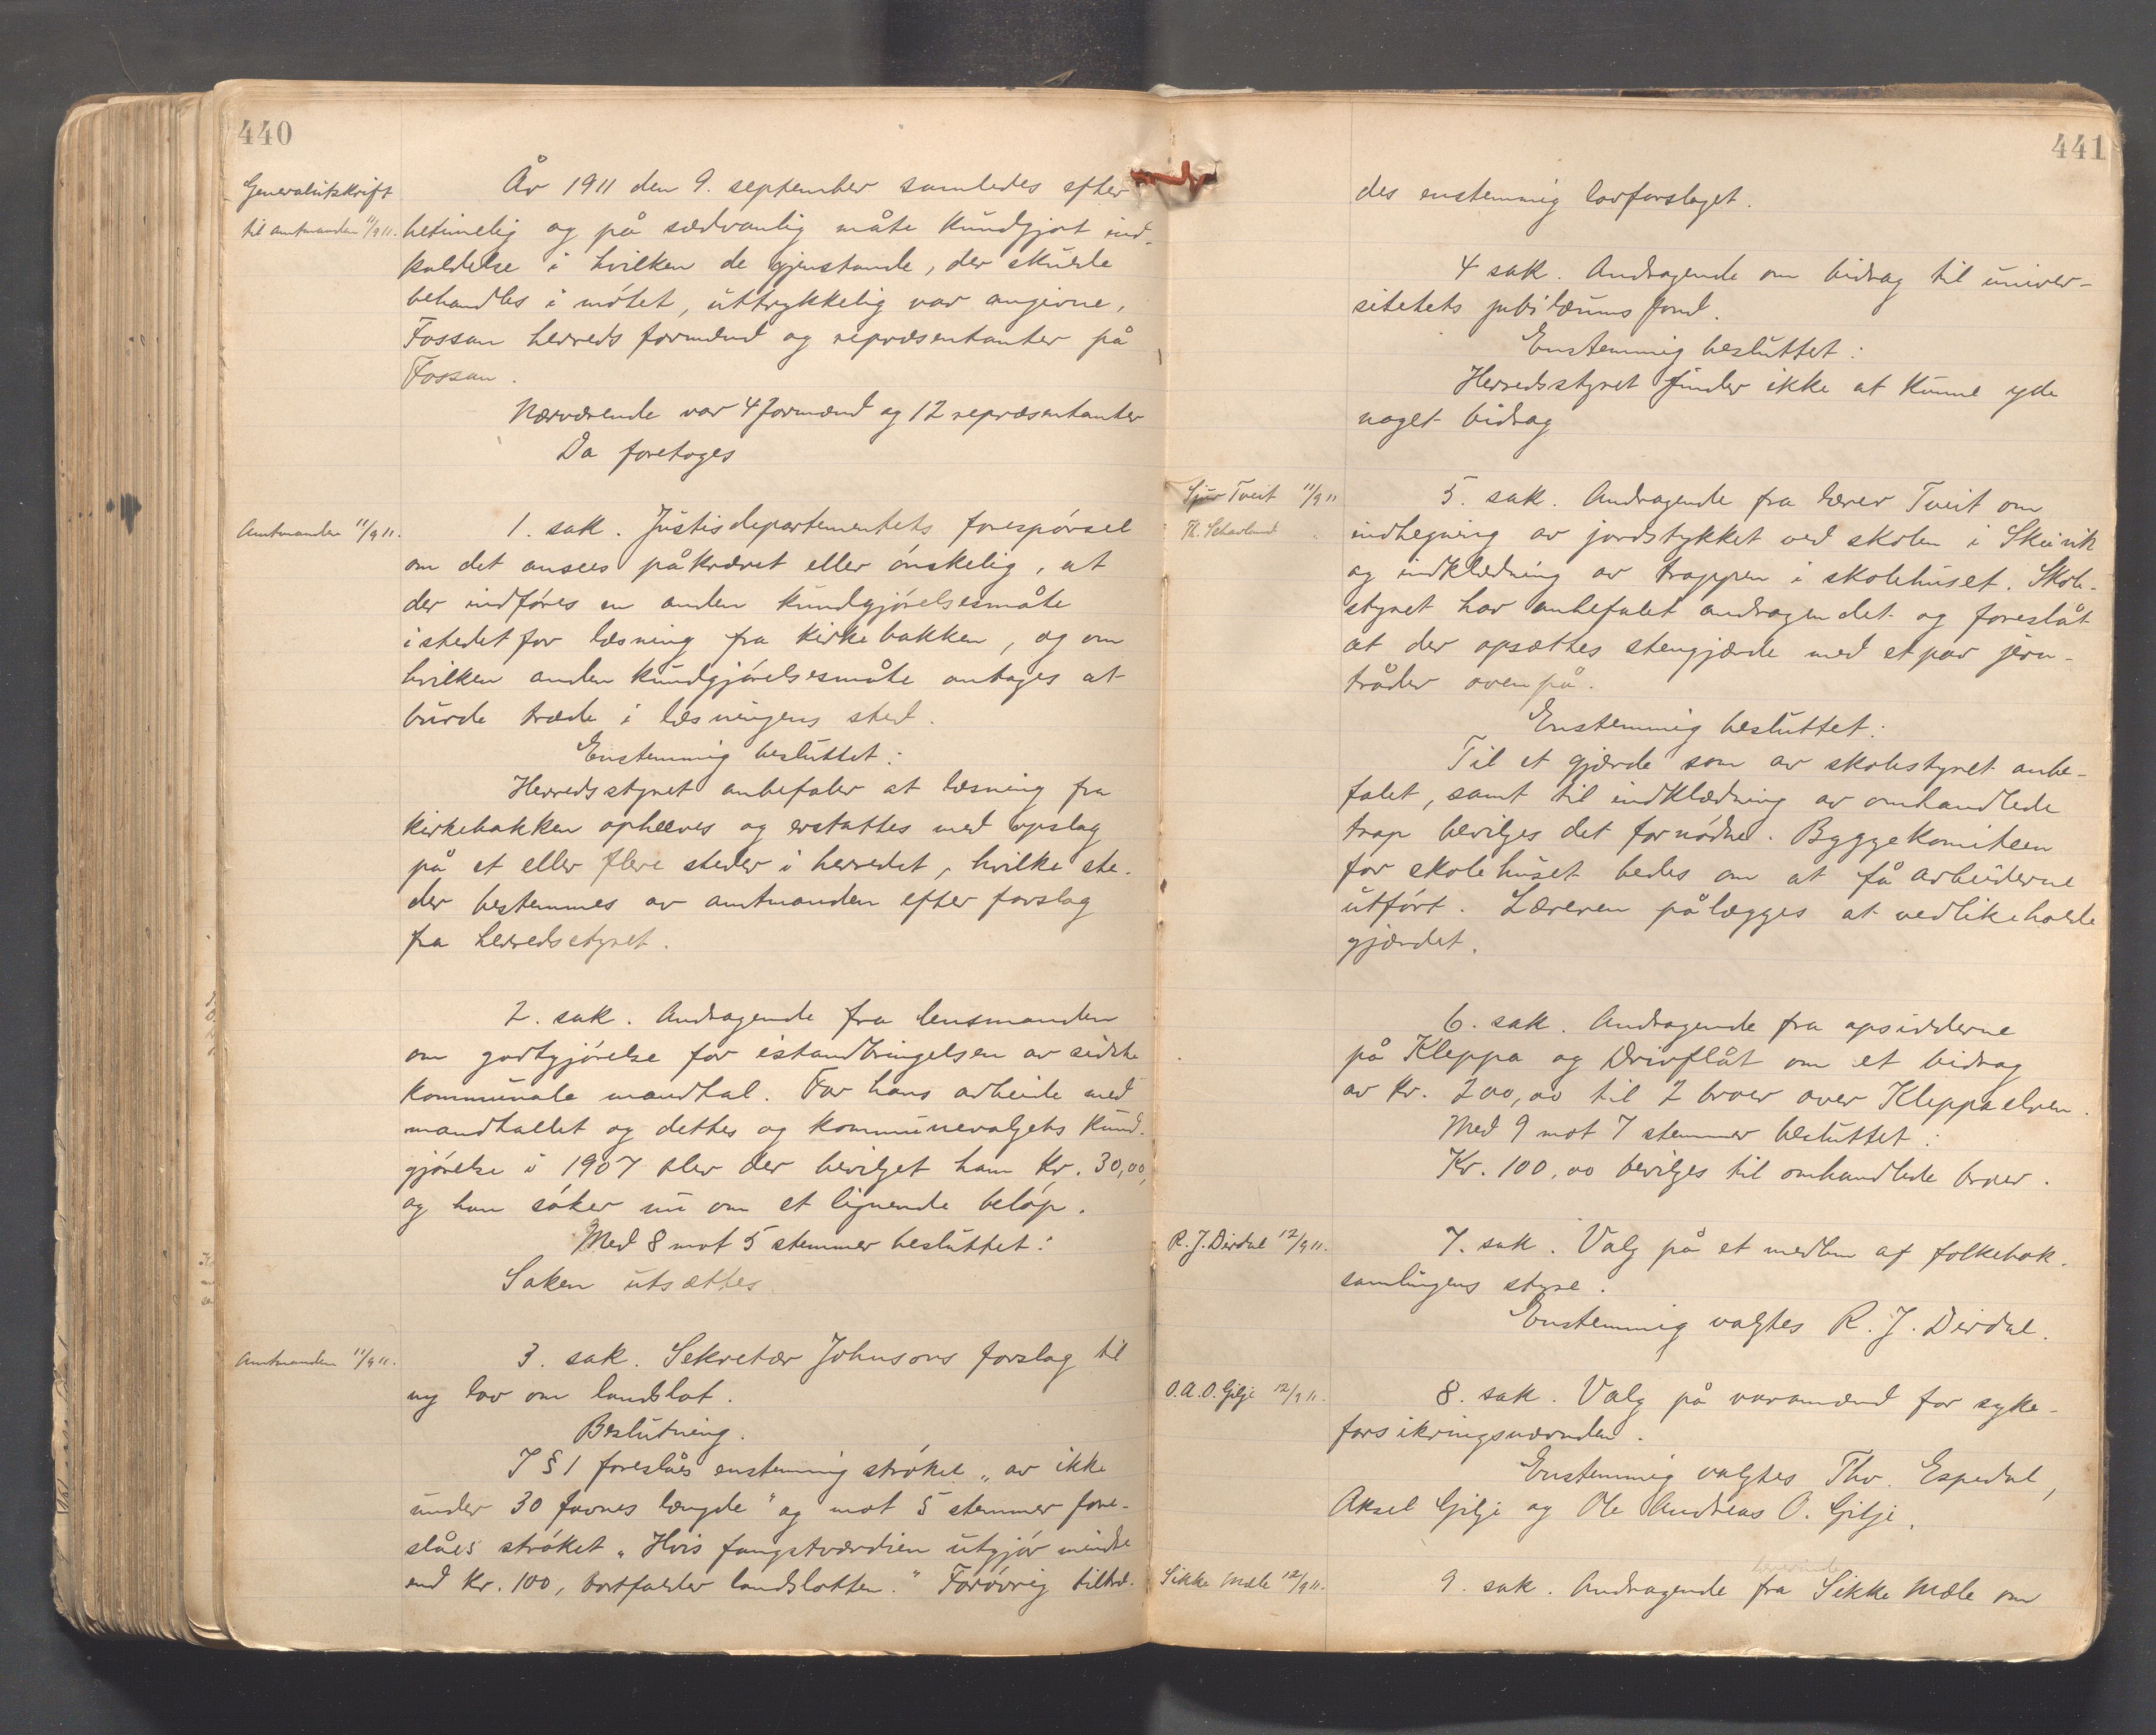 440
Generalutskrift
til amtmanden 11/9 11.
År 1911 den 9. september samledes efter
betimelig og på sædvanlig måte kundgjort ind-
kaldelse i hvilken de gjenstande, der skulde
behandles i møtet, uttrykkelig var angivne,
Fossan herreds formænd og repræsentanter på
Fossan.
Nærværende var 4 formænd og 12 repræsentanter
Da foretoges
Amtmanden 11/9 11.
1. sak. Justisdepartementets forespørsel
om det ansees påkrævet eller ønskelig, at
der indføres en anden kundgjørelsesmåte
istedetfor læsning fra kirkebakken, og om
hvilken anden kundgjørelsesmåte antages at
burde træde i læsningens sted.
Enstemmig besluttet:
Herredsstyret anbefaler at læsning fra
kirkebakken ophæves og erstattes med opslag
på et eller flere steder i herredet, hvilke ste-
der bestemmes av amtmanden efter forslag
fra herredsstyret.
2. sak. Andragende fra lensmanden
om godtgjørelse for istandbringelsen av sidste
kommunale mandtal. For hans arbeide med
mandtallet og dettes og kommunevalgets kund-
gjørelse i 1907 blev der bevilget ham kr. 30,00,
og han søker nu om et lignende beløp.
Med 8 mot 5 stemmer besluttet:
Saken utsættes.
Amtmanden 11/9 11.
3. sak. Sekretær Johnsons forslag til
ny lov om landslot.
Beslutning.
I § 1 foreslåes enstemmig strøket „av ikke
under 30 favnes længde" og mot 5 stemmer fore-
slåes strøket „Hvis fangstværdien utgjør mindre
end kr. 100, bortfalder landslotten." Forøvrig tiltræ-
441
des enstemmig lovforslaget.
4 sak. Andragende om bidrag til univer-
sitetets jubilæums fond.
Enstemmig besluttet:
Herredsstyret finder ikke at kunne yde
noget bidrag
Sjur Tveit 11/9 11
Th. Schavland "
5. sak. Andragende fra lærer Tveit om
indhegning av jordstykket ved skolen i Skurvik
og indklædning av trappen i skolehuset. Skole-
styret har anbefalet andragendet og foreslåt
at der opsættes stengjærde med et par jern-
tråder ovenpå.
Enstemmig besluttet:
Til et gjærde som av skolestyret anbe-
falet, samt til indklædning av omhandlede
trap bevilges det fornødne. Byggekomiteen
for skolehuset bedes om at få arbeiderne
utført. Læreren pålægges at vedlikeholde
gjærdet.
6. sak. Andragende fra opsidderne
på Kleppa og Drivflåt om et bidrag
av kr. 200,00 til 2 broer over Kleppaelven.
Med 9 mot 7 stemmer besluttet:
Kr. 100,00 bevilges til omhandlede broer.
R. J. Dirdal 12/9 11.
7. sak. Valg på et medlem af folkebok-
samlingens styre.
Enstemmig valgtes R. J. Dirdal.
O. A. O. Gilje 12/9 11.
8. sak. Valg på varamænd for syke-
forsikringsnævnden.
Enstemmig valgtes Thv. Espedal,
Aksel Gilje og Ole Andreas O. Gilje.
Sikke Mæle 12/9 11.
9. sak. Andragende fra Sikke Mæle om